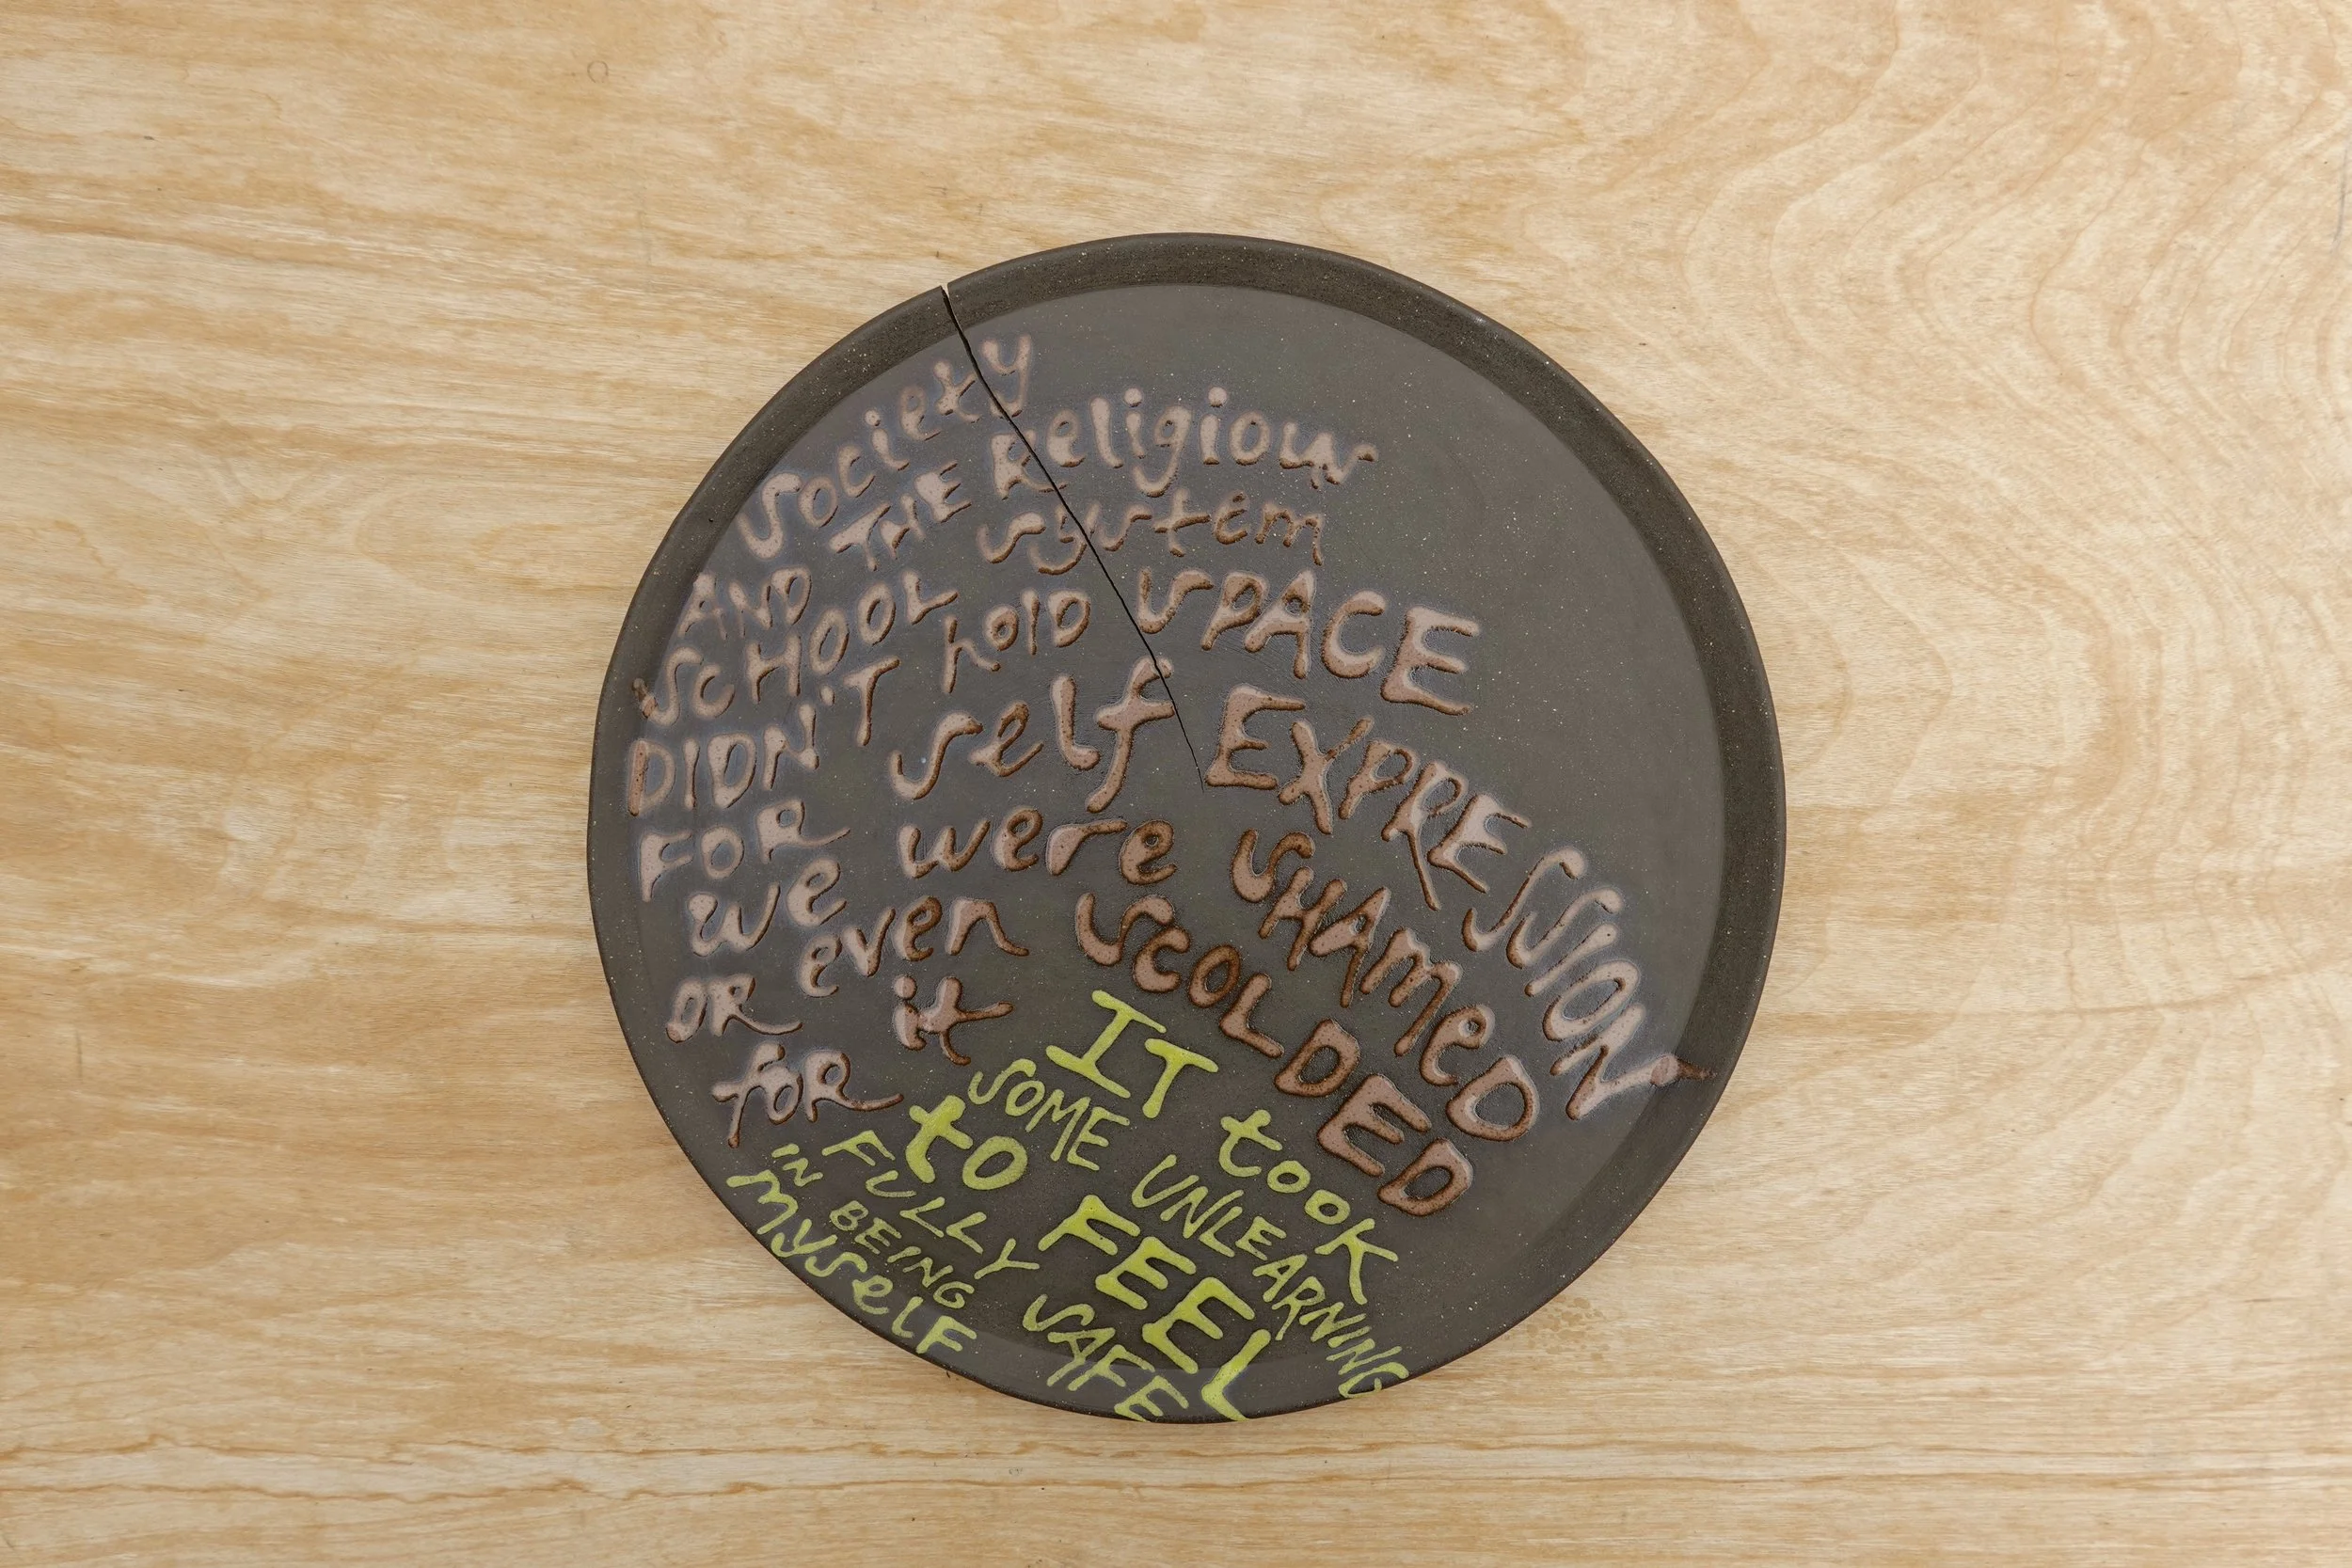 Society
AND THE Religious
SCHOOL system
DIDN'T hold SPACE
FOR self EXPRESSION
we were SHAMeD
OR even SCOLDED
for it
IT took
SOME UNLEARNING
to FEEL
FULLY SAFE
IN BEING
myself